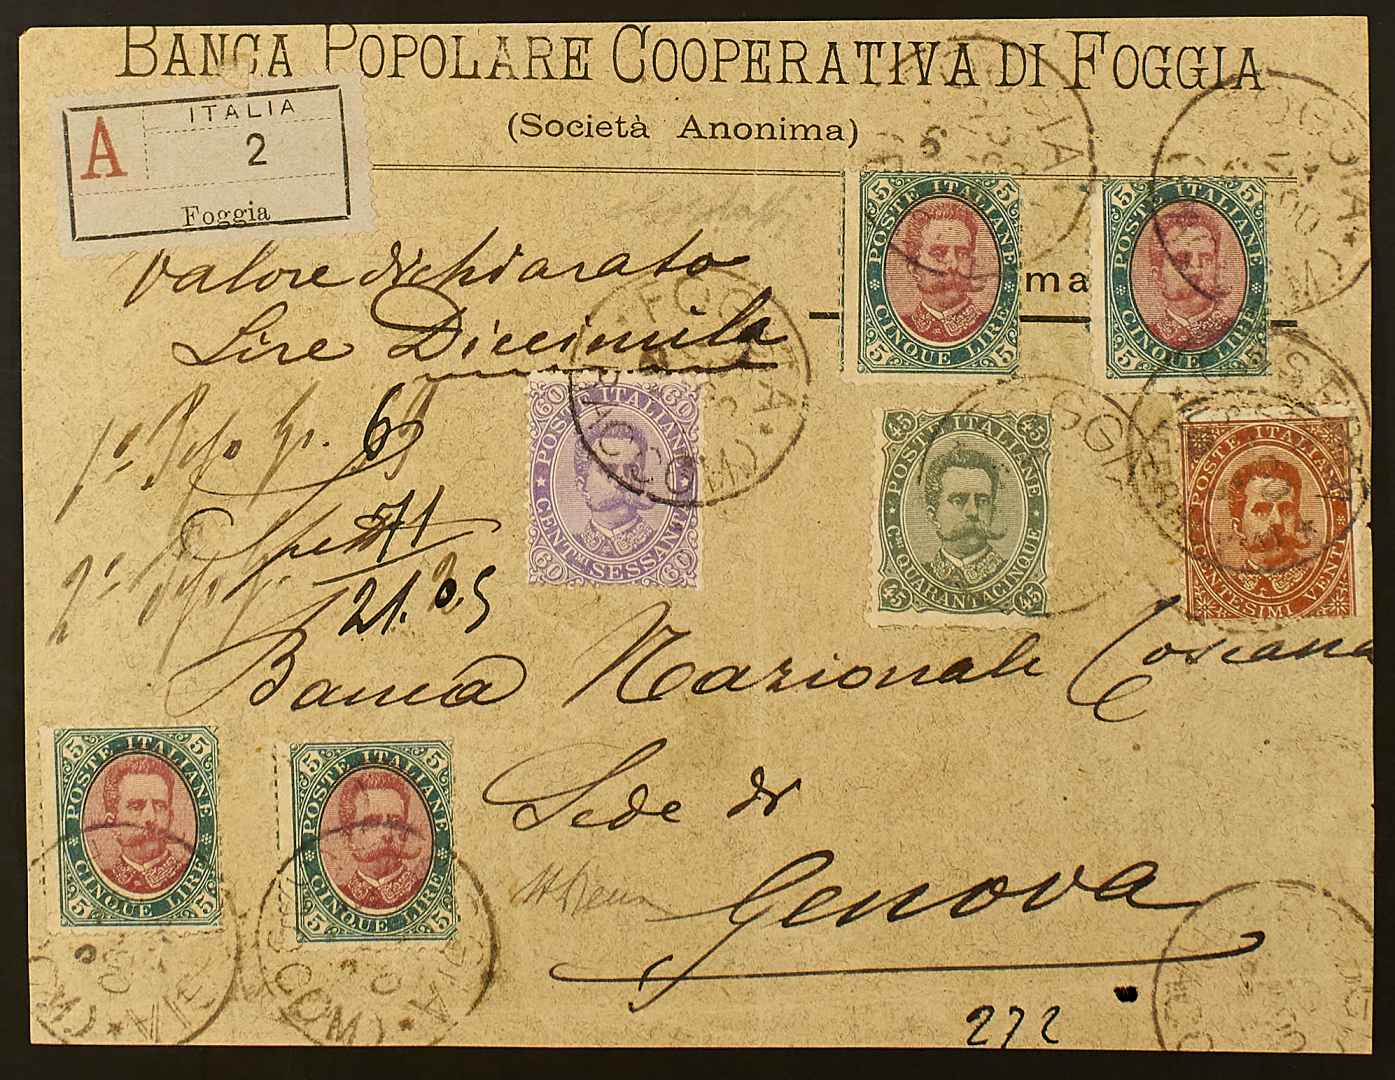 BANCA POPOLARE COOPERATIVA DI FOGGIA
(Società Anonima)
A
ITALIA
2
Foggia
Valore dichiarato
Lire Diecimila
ma
5 5
POSTE ITALIANE
CINQUE LIRE
5 5
5 5
POSTE ITALIANE
CINQUE LIRE
5 5
FOGGIA
RACCOM
FOGGIA
FOGGIA
60 60
POSTE ITALIANE
CENT.MI SESSANTA
60 60
45 45
POSTE ITALIANE
C.MI QUARANTACINQUE
45 45
POSTE ITALIANE
CENTESIMI VENTI
1° Peso gr. 6
21.05
Banca Nazionale Toscana
Sede di
Genova
5 5
POSTE ITALIANE
CINQUE LIRE
5 5
5 5
POSTE ITALIANE
CINQUE LIRE
5 5
272